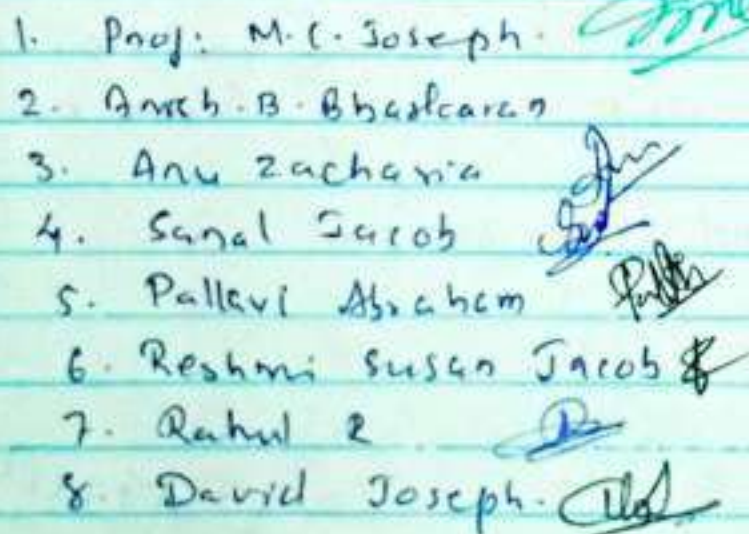 1. Prof: M.C. Joseph.
2. Aneesh. B. Bhaskaran
3. Anu Zacharia
4. Sanal Jacob
5. Pallavi Abraham
6. Reshmi Susan Jacob
7. Rahul R
8. David Joseph.